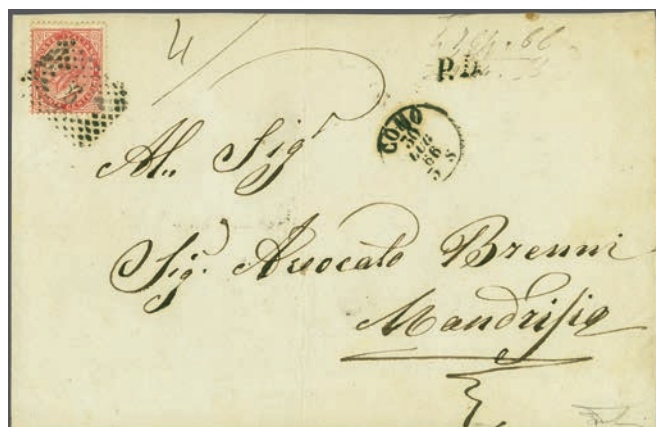 4
P.D.
COMO
30
LUG
66
3 S
Al.. Sig
Sig. Avvocato Brenni
Mandrisio